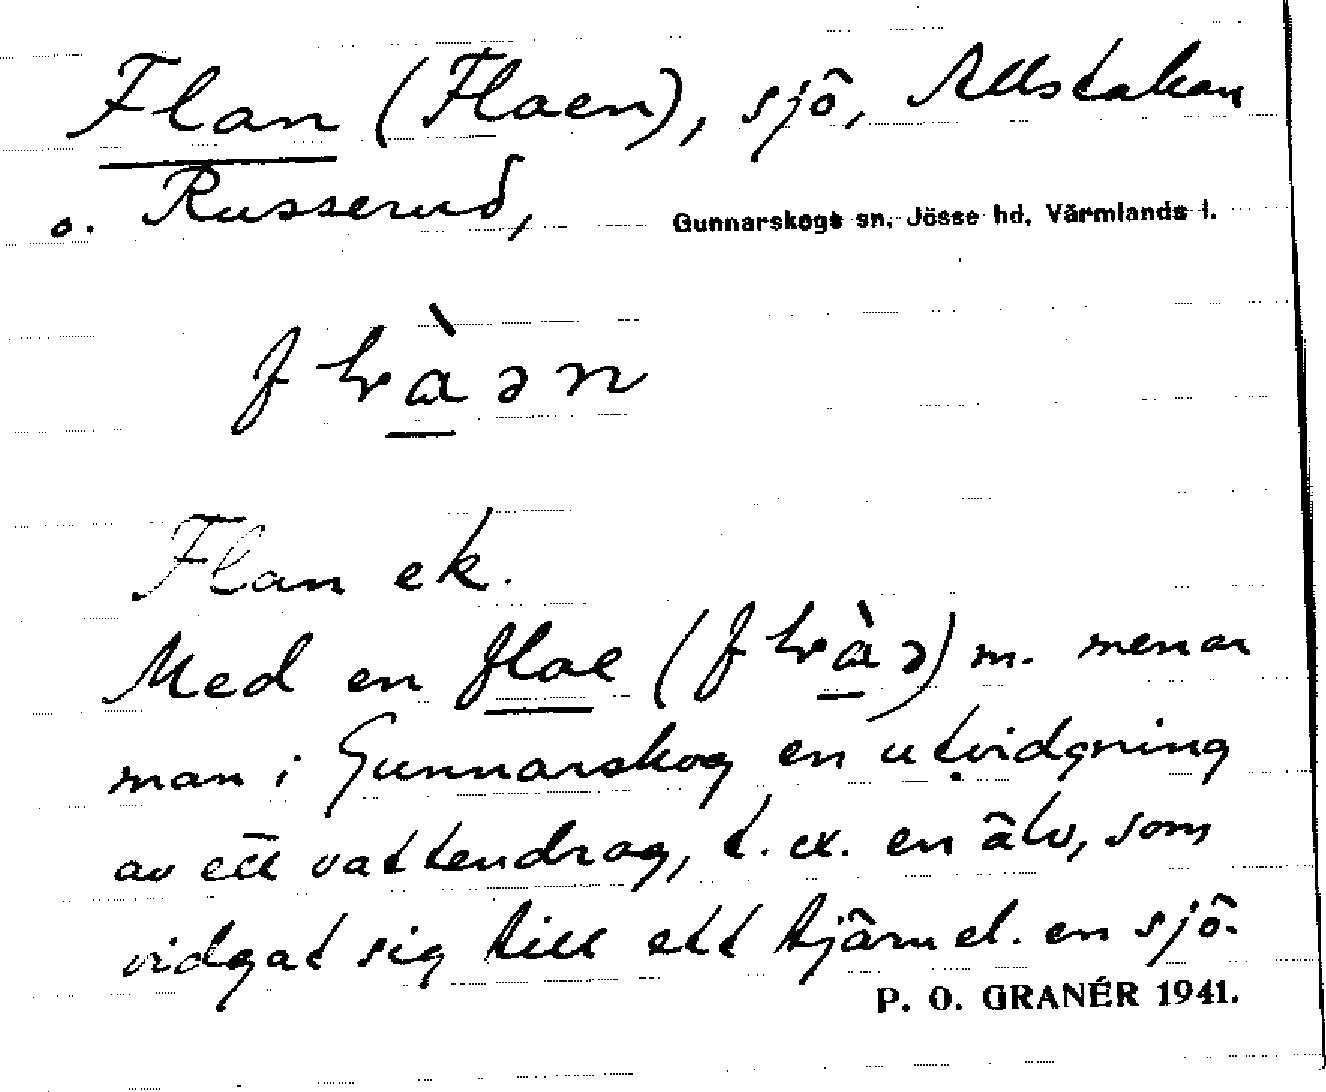 Flan (Flaen), sjö, Allstakan
o. Russerud, Gunnarskogs sn, Jösse hd, Värmlands l.
Flan ek.
Med en flae m. menar
man i Gunnarskog en utvidgning
av ett vattendrag, t. ex. en älv, som
vidgat sig till ett tjärn el. en sjö.
P. O. GRANÉR 1941.